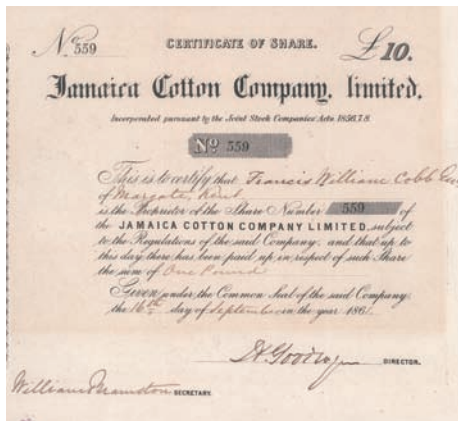 No 559 CERTIFICATE OF SHARE. £10.
Jamaica Cotton Company, limited,
Incorporated pursuant to the Joint Stock Companies' Acts 1856,7,8.
No 559
This is to certify that Francis William Cobb Esq
of Margate, Kent
is the Proprietor of the Share Number 559 of
the JAMAICA COTTON COMPANY LIMITED, subject
to the Regulations of the said Company, and that up to
this day there has been paid up in respect of such Share
the sum of One Pound
Given under the Common Seal of the said Company,
the 16th day of September in the year 1861.
DIRECTOR.
William SECRETARY.